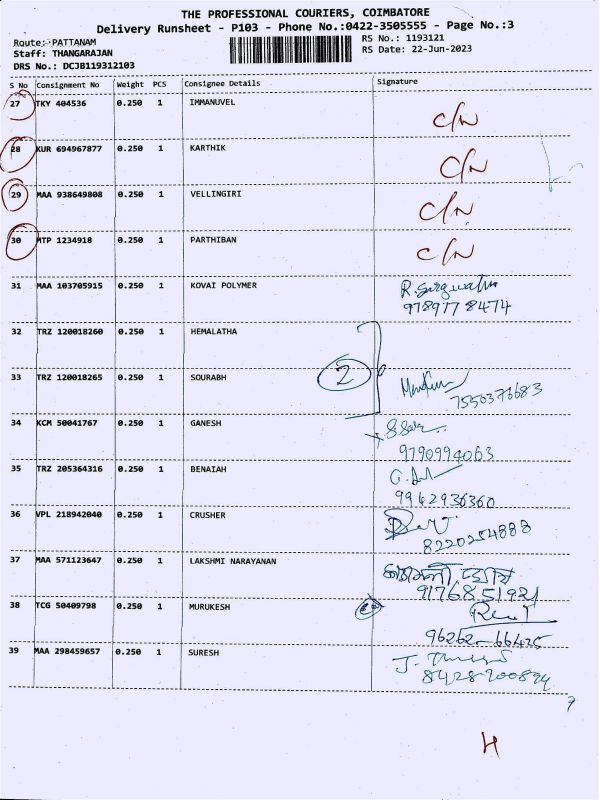 THE PROFESSIONAL COURIERS, COIMBATORE
Delivery Runsheet - P103 - Phone No.:0422-3505555 - Page No.:3
Route: PATTANAM RS No.: 1193121
Staff: THANGARAJAN RS Date: 22-Jun-2023
DRS No.: DCJB119312103
S No Consignment No Weight PCS Consignee Details Signature
27 TKY 404536 0.250 1 IMMANUVEL C/N
28 KUR 694967877 0.250 1 KARTHIK C/N
29 MAA 938649808 0.250 1 VELLINGIRI C/N
30 MTP 1234918 0.250 1 PARTHIBAN C/N
31 MAA 103705915 0.250 1 KOVAI POLYMER
9789778474
32 TRZ 120018260 0.250 1 HEMALATHA
33 TRZ 120018265 0.250 1 SOURABH 2
7550376683
34 KCM 50041767 0.250 1 GANESH
9790994063
35 TRZ 205364316 0.250 1 BENAIAH
9942936360
36 VPL 218942040 0.250 1 CRUSHER
8220254888
37 MAA 571123647 0.250 1 LAKSHMI NARAYANAN
9176851921
38 TCG 50409798 0.250 1 MURUKESH
96262-66425
39 MAA 298459657 0.250 1 SURESH